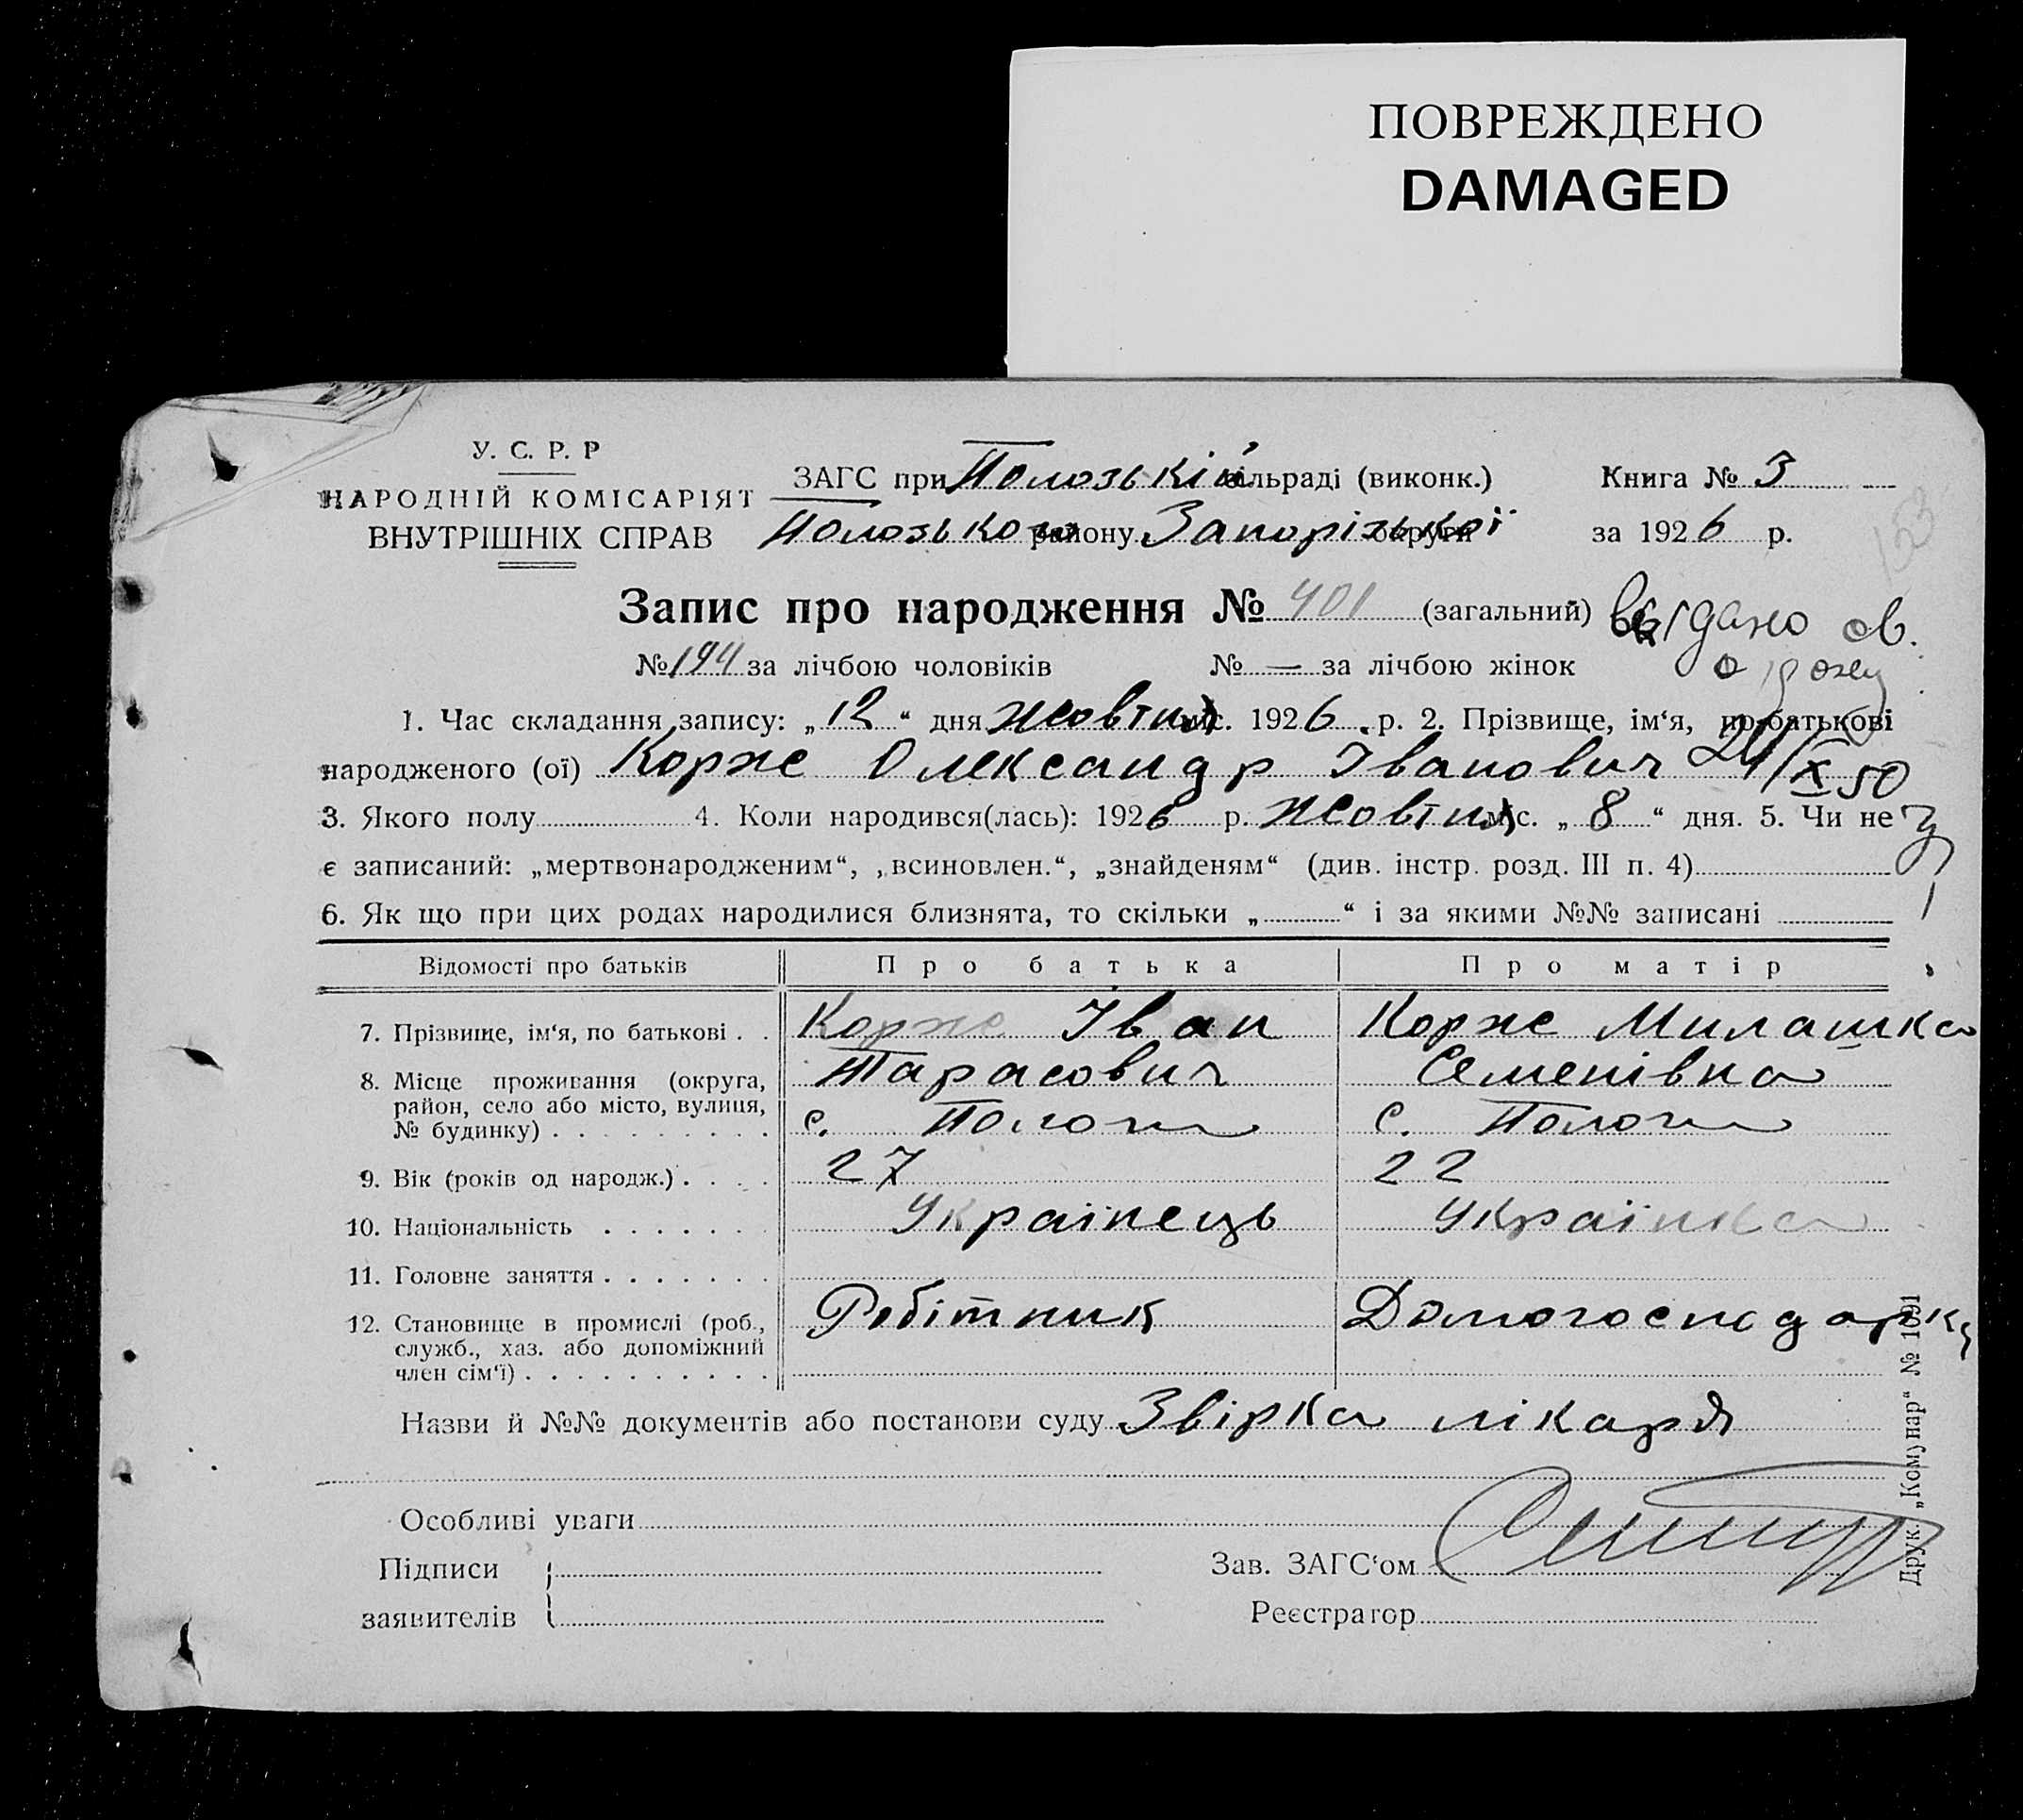 ПОВРЕЖДЕНО
DAMAGED
У. С. Р. Р
НАРОДНІЙ КОМІСАРІЯТ
ВНУТРІШНІХ СПРАВ
ЗАГС при Полозькій сільраді (виконк.)
Полозького району Запорізької округи
Книга № 3
за 1926 р.
153
Запис про народження № 401 (загальний)
видано св.
№ 194 за лічбою чоловіків № — за лічбою жінок
о рожд
1. Час складання запису: „ 12 “ дня жовтня міс. 1926 р. 2. Прізвище, ім‘я, по-батькові
народженого (ої) Корже Олександр Іванович 24/X 50
3. Якого полу 4. Коли народився(лась): 1926 р. жовтня міс. „ 8 “ дня. 5. Чи не
є записаний: „мертвонародженим“, „всиновлен.“, „знайденям“ (див. інстр. розд. III п. 4)
6. Як що при цих родах народилися близнята, то скільки „ “ і за якими №№ записані
Відомості про батьків Про батька Про матір
7. Прізвище, ім‘я, по батькові . . Корже Іван Корже Милашка
Тарасович Семенівна
8. Місце проживання (округа,
район, село або місто, вулиця,
№ будинку) . . . . . . . . . с. Пологи с. Пологи
9. Вік (років од народж.) . . . . 27 22
10. Національність . . . . . . Українець Українка
11. Головне заняття . . . . . . .
12. Становище в промислі (роб., Робітник Домогосподарка
служб., хаз. або допоміжний
член сім‘ї) . . . . . . . . . .
Назви й №№ документів або постанови суду Звірка лікаря
Особливі уваги
Підписи
заявителів
Зав. ЗАГС‘ом
Реєстратор
Друк. „Комунар“ № 1091